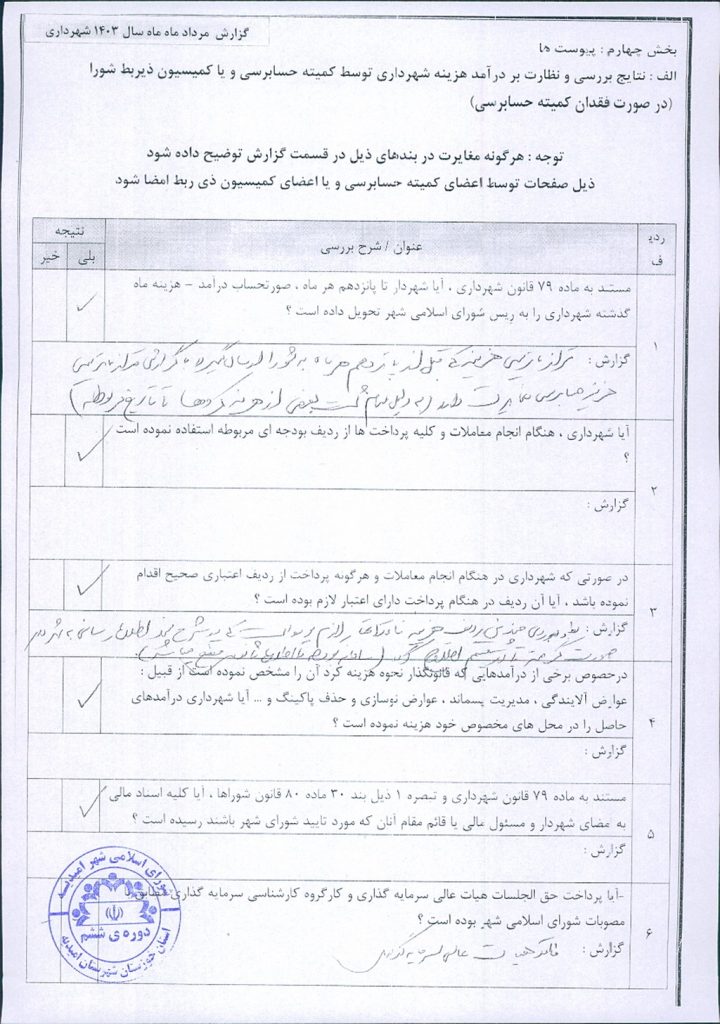 گزارش مرداد ماه ماه سال ۱۴۰۳ شهرداری
بخش چهارم : پیوست ها
الف : نتایج بررسی و نظارت بر درآمد هزینه شهرداری توسط کمیته حسابرسی و یا کمیسیون ذیربط شورا
(در صورت فقدان کمیته حسابرسی)
توجه : هرگونه مغایرت در بندهای ذیل در قسمت گزارش توضیح داده شود
ذیل صفحات توسط اعضای کمیته حسابرسی و یا اعضای کمیسیون ذی ربط امضا شود
ردیف
عنوان / شرح بررسی
نتیجه
بلی
خیر
۱
مستند به ماده ۷۹ قانون شهرداری ، آیا شهردار تا پانزدهم هر ماه ، صورتحساب درآمد – هزینه ماه
گذشته شهرداری را به رییس شورای اسلامی شهر تحویل داده است ؟
گزارش : تراز هزینه قبل از پانزدهم هر ماه به شورا ارسال
مغایرت دارد (به دلیل عدم ثبت بعضی از هزینه کردها تا تاریخ مربوطه)
۲
آیا شهرداری ، هنگام انجام معاملات و کلیه پرداخت ها از ردیف بودجه ای مربوطه استفاده نموده است
؟
گزارش :
۳
در صورتی که شهرداری در هنگام انجام معاملات و هرگونه پرداخت از ردیف اعتباری صحیح اقدام
نموده باشد ، آیا آن ردیف در هنگام پرداخت دارای اعتبار لازم بوده است ؟
گزارش : بطور موردی چندین ردیف هزینه
صورت گرفته تا
۴
درخصوص برخی از درآمدهایی که قانونگذار نحوه هزینه کرد آن را مشخص نموده است از قبیل :
عوارض آلایندگی ، مدیریت پسماند ، عوارض نوسازی و حذف پاکینگ و ... آیا شهرداری درآمدهای
حاصل را در محل های مخصوص خود هزینه نموده است ؟
گزارش :
۵
مستند به ماده ۷۹ قانون شهرداری و تبصره ۱ ذیل بند ۳۰ ماده ۸۰ قانون شوراها ، آیا کلیه اسناد مالی
به مضای شهردار و مسئول عالی یا قائم مقام آنان که مورد تایید شورای شهر باشند رسیده است ؟
گزارش :
۶
-آیا پرداخت حق الجلسات هیات عالی سرمایه گذاری و کارگروه کارشناسی سرمایه گذاری مطابق با
مصوبات شورای اسلامی شهر بوده است ؟
گزارش : فاقد هیات عالی سرمایه گذاری
شورای اسلامی شهر امیدیه
دوره ی ششم
استان خوزستان شهرستان امیدیه